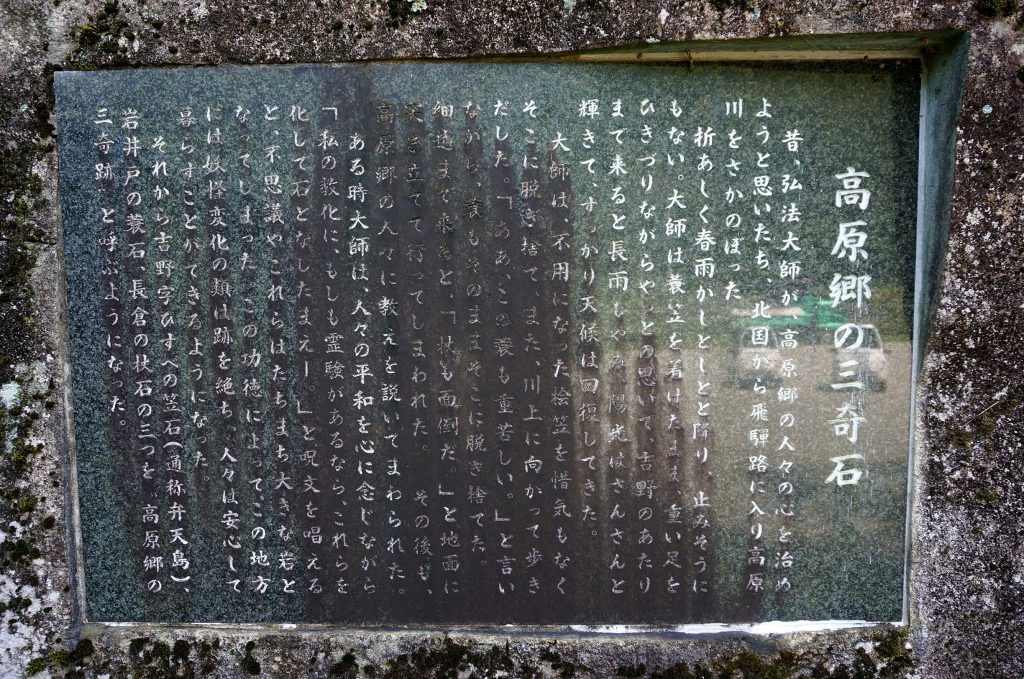 高原郷の三奇石
昔、弘法大師が、高原郷の人々の心を治め
ようと思いたち、北国から飛騨路に入り高原
川をさかのぼった。
折あしく春雨がしとしとと降り、止みそうに
もない。大師は蓑笠を着けたまま、重い足を
ひきづりながらやっとの思いで、吉野のあたり
まで来ると長雨もやみ、陽光はさんさんと
輝きて、すっかり天候は回復してきた。
大師は、不用になった桧笠を惜気もなく
そこに脱ぎ捨て、また、川上に向かって歩き
だした。「ああ、この蓑も重苦しい。」と言い
ながら、蓑もそのままそこに脱ぎ捨てた。
細越まで来ると、「杖も面倒だ。」と地面に
突き立てて行ってしまわれた。その後も、
高原郷の人々に教えを説いてまわられた。
ある時大師は、人々の平和を心に念じながら
「私の教化に、もしも霊験があるなら、これらを
化して石となしたまえー。」と呪文を唱える
と、不思議やこれらはたちまち大きな岩と
なってしまった。この功徳によって、この地方
には妖怪変化の類は跡を絶ち、人々は安心して
暮らすことができるようになった。
それから吉野字ひすへの笠石(通称弁天島)、
岩井戸の蓑石、長倉の杖石の三つを、高原郷の
三奇跡、と呼ぶようになった。